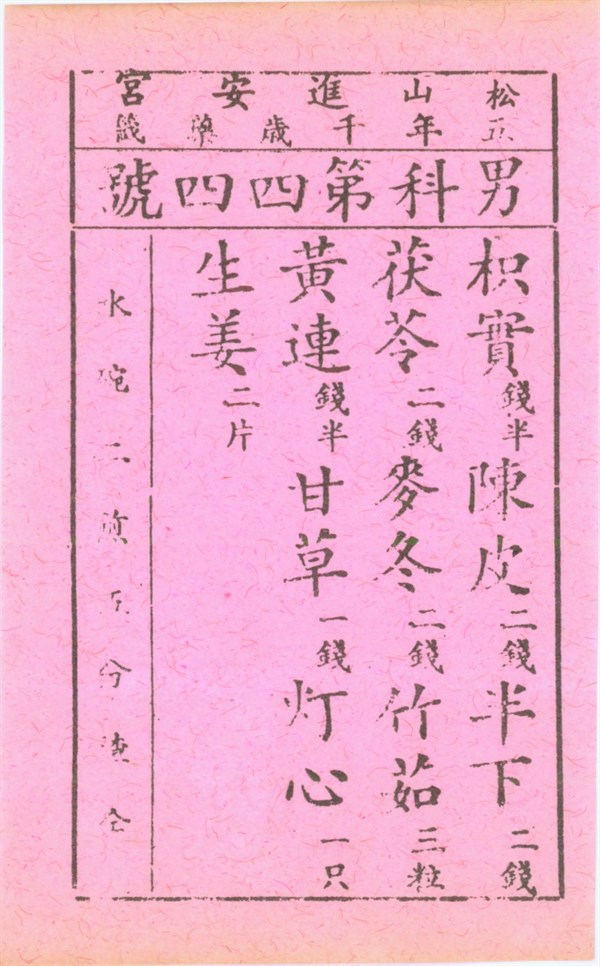 松山進安宮
五年千歲藥籤
男科第四四號
枳實錢半 陳皮二錢 半下二錢
茯苓二錢 麥冬二錢 竹茹三粒
黃連錢半 甘草一錢 灯心一只
生姜二片
水碗二煎五分渣仝